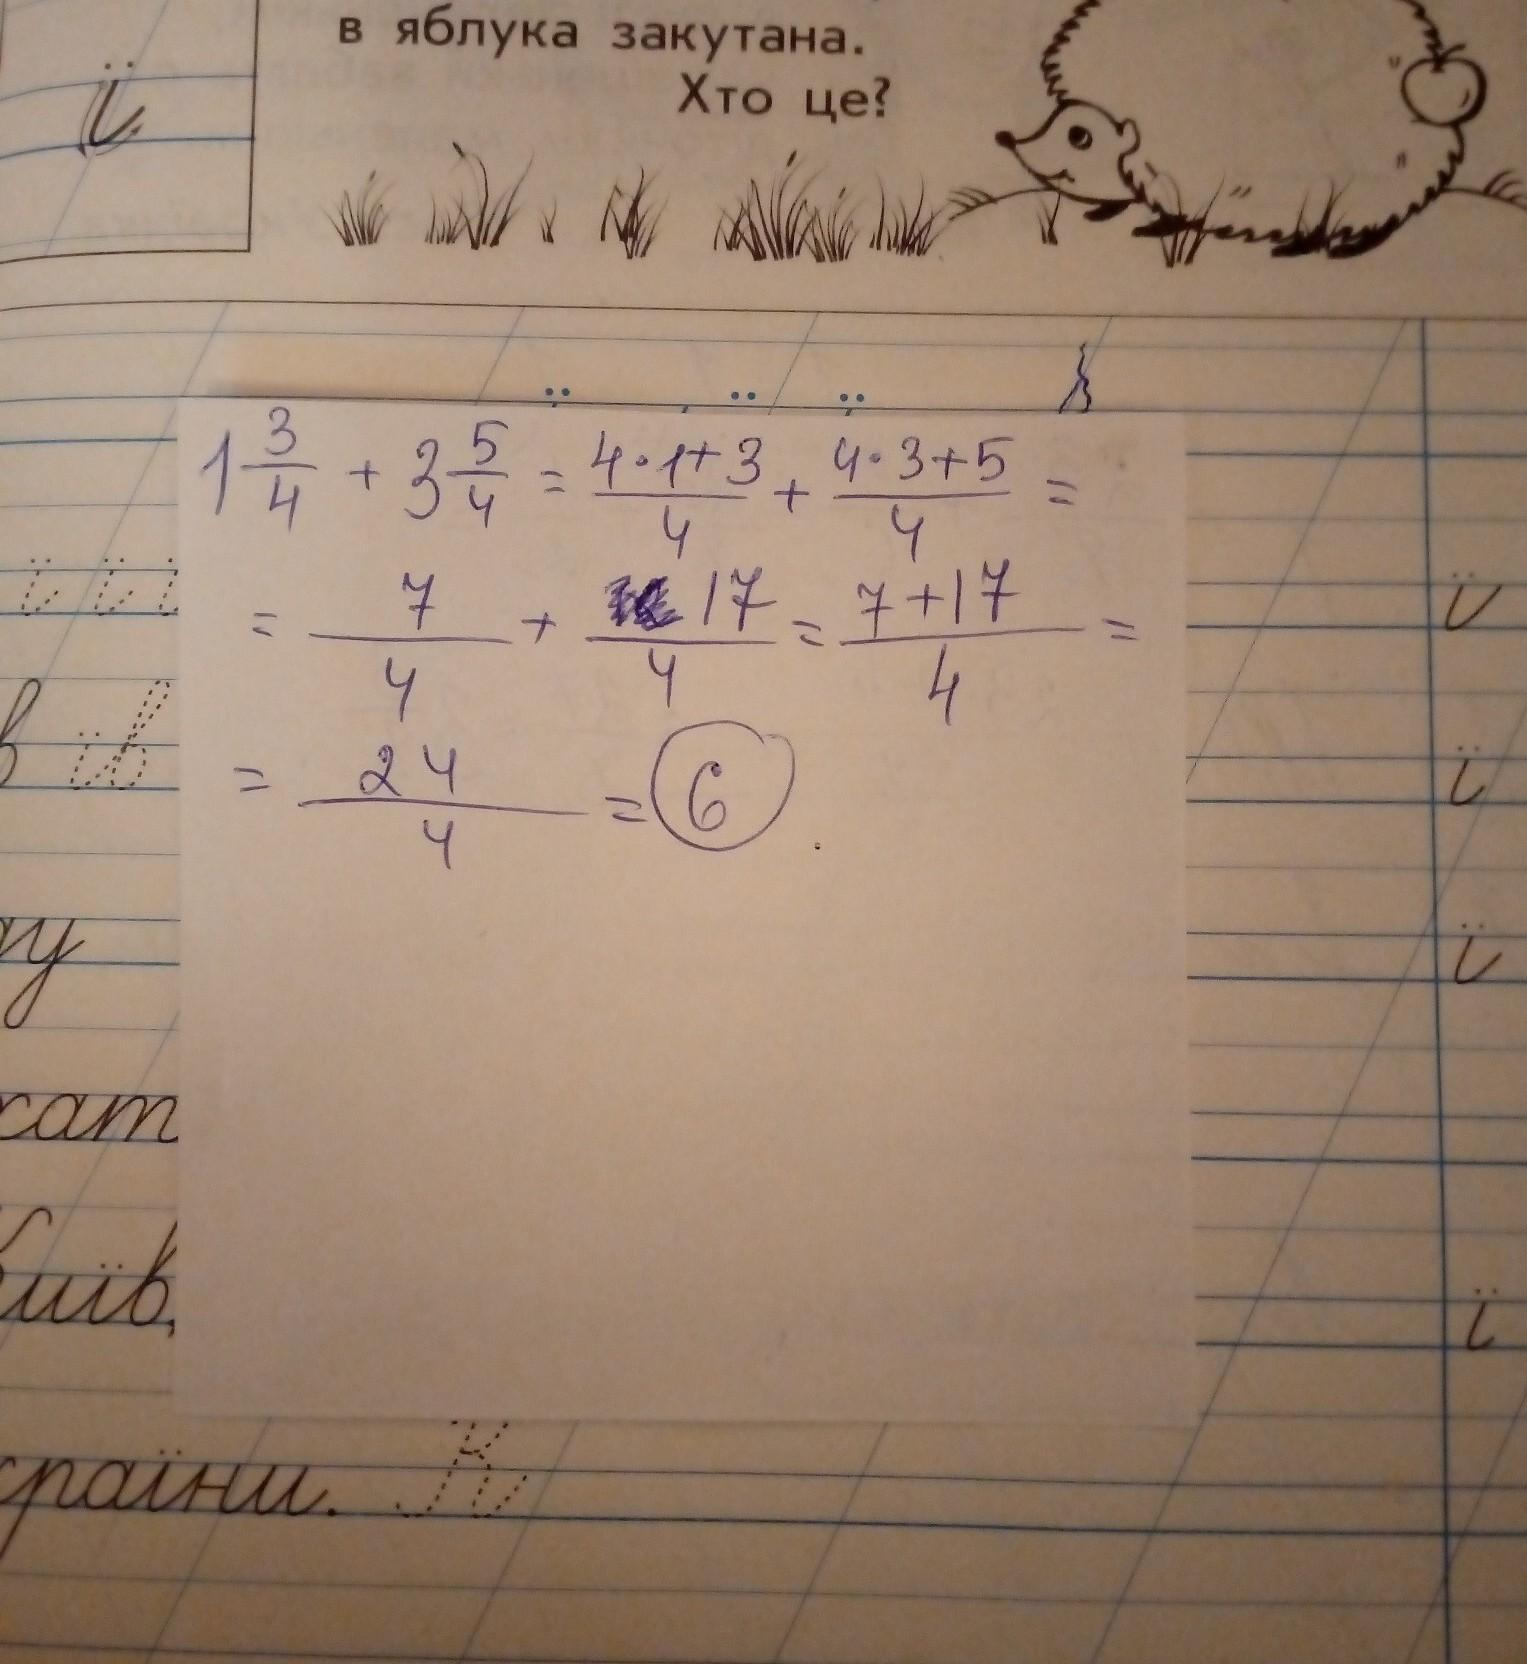 в яблука закутана.
Хто це?
ї
1 3/4 + 3 5/4 = (4·1+3)/4 + (4·3+5)/4 =
= 7/4 + 17/4 = (7+17)/4 =
= 24/4 = 6
ї ї ї
ї
в їв
ї
ї
Київ,
ї
країни. К